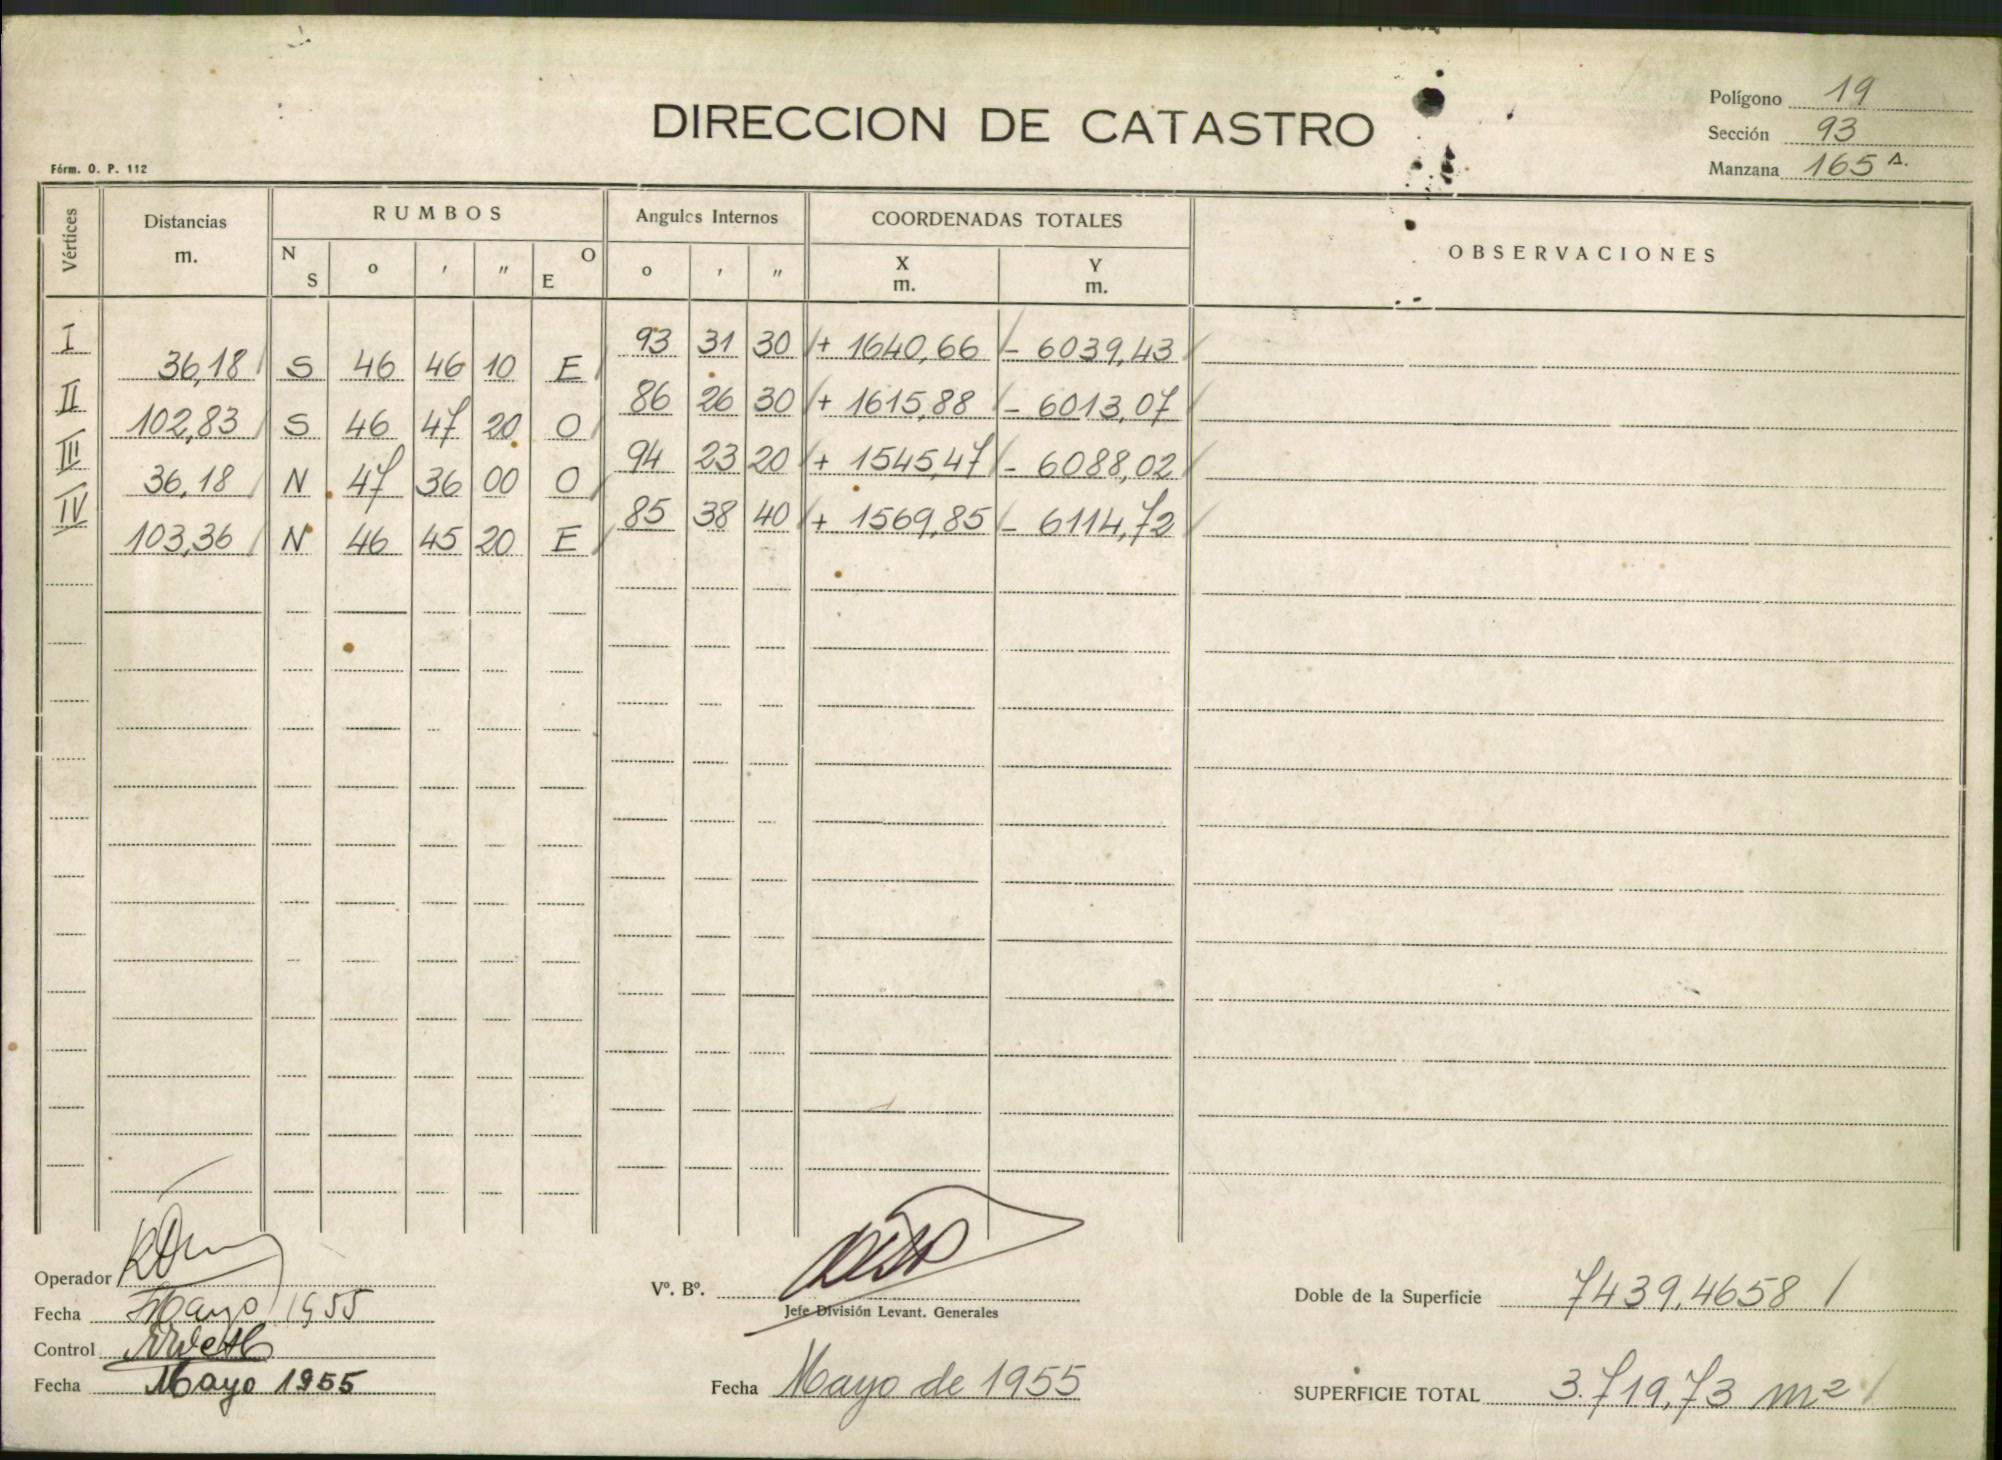 DIRECCION DE CATASTRO
Polígono 19
Sección 93
Manzana 165 A.
Fórm. O. P. 112
Vértices Distancias m. RUMBOS N S o ' " O E Angulos Internos o ' " COORDENADAS TOTALES X m. Y m. OBSERVACIONES
I 93 31 30 + 1640,66 - 6039,43
36,18 S 46 46 10 E
II 86 26 30 + 1615,88 - 6013,07
102,83 S 46 47 20 O
III 94 23 20 + 1545,47 - 6088,02
36,18 N 47 36 00 O
IV 85 38 40 + 1569,85 - 6114,72
103,36 N 46 45 20 E
Operador
Fecha Mayo 1955
Control
Fecha Mayo 1955
Vº. Bº.
Jefe División Levant. Generales
Fecha Mayo de 1955
Doble de la Superficie 7439,4658
SUPERFICIE TOTAL 3.719,73 m2